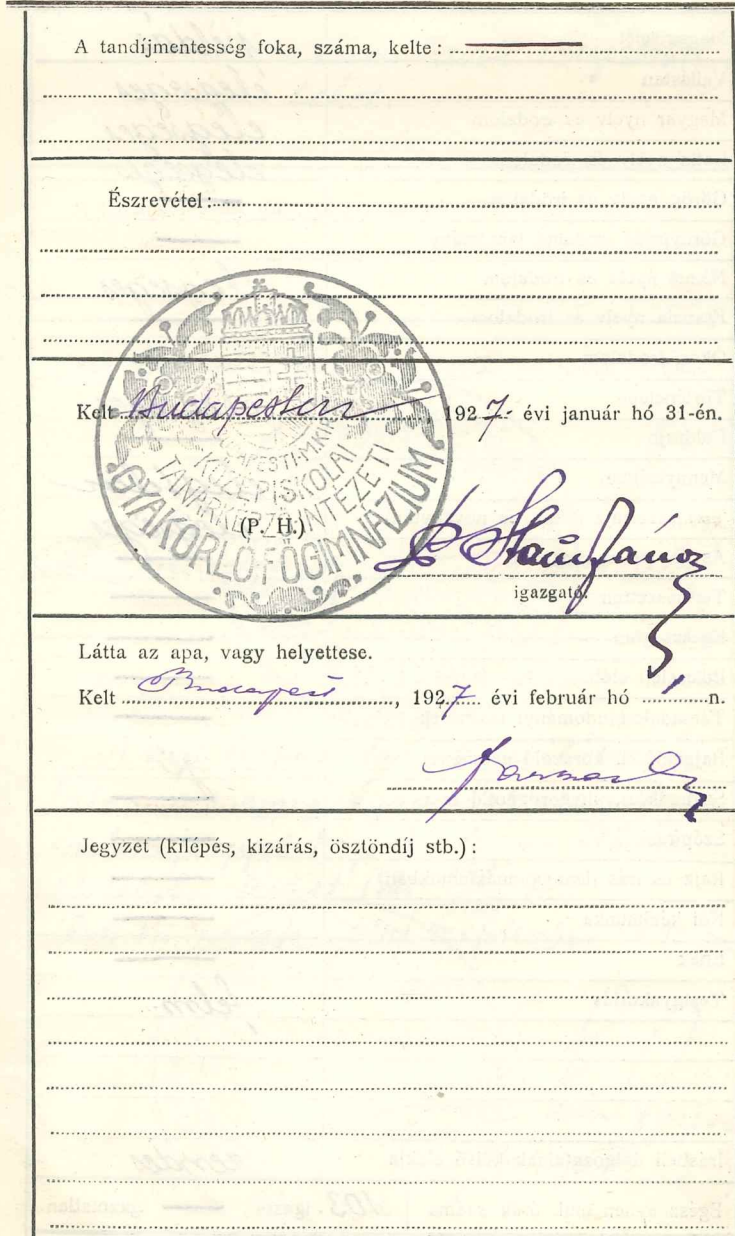 A tandíjmentesség foka, száma, kelte :
Észrevétel :
Kelt Budapesten, 1927- évi január hó 31-én.
BUDAPESTI M. KIR.
KÖZÉPISKOLAI
TANÁRKÉPZŐ INTÉZETI
GYAKORLÓ FŐGIMNÁZIUM
(P. H.)
János
igazgató.
Látta az apa, vagy helyettese.
Kelt Budapest, 1927. évi február hó 1 n.
Jegyzet (kilépés, kizárás, ösztöndíj stb.) :